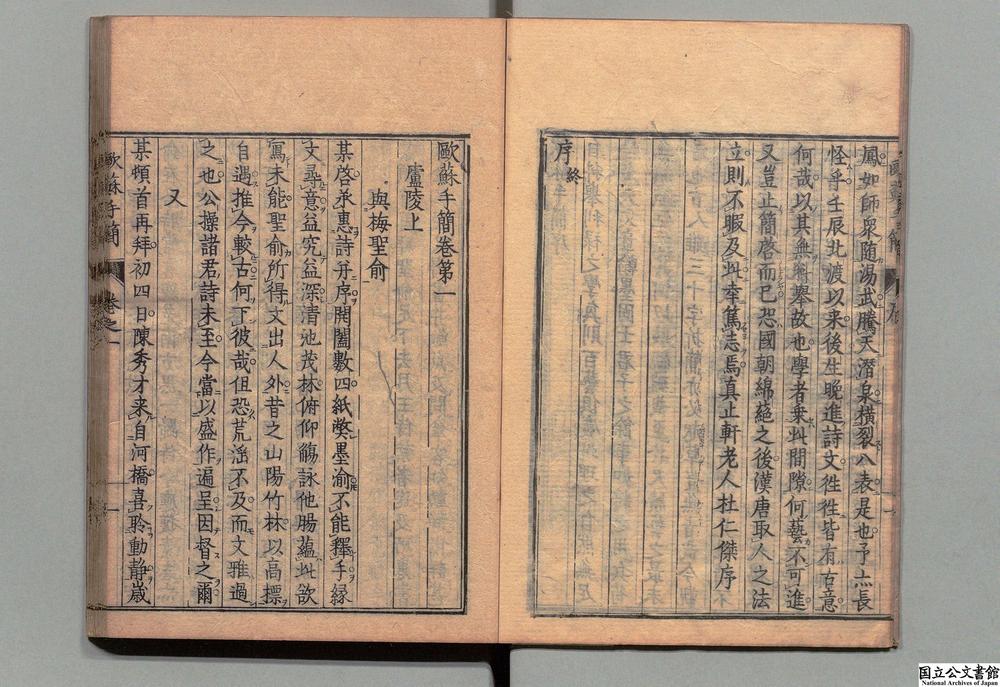 鳳如師衆随湯武騰天潛泉横裂八表是也予亦長
怪乎壬辰北渡以来後生晩進詩文徃徃皆有古意
何哉以其無科舉故也學者乗此間隙何藝不可進
又豈止簡啓而已恐國朝綿絶之後漢唐取人之法
立則不暇及此幸篤志焉真止軒老人杜仁傑序
序終
歐蘇手簡卷第一
廬陵上
與梅聖俞
某啓承惠詩并序開闔數四紙弊墨渝不能釋手縁
文尋意益究益深清池茂林俯仰觴詠他腸蘊此欲
寫未能聖俞所得文出人外昔之山陽竹林以高標
自遇推今較古何下彼哉但恐荒滛不及而文雅過
之也公操諸君詩未至今當以盛作遍呈因督之爾
又
某頓首再拜初四日陳秀才来自河橋喜聆動静歳
歐蘇手簡
卷之一
一
国立公文書館
National Archives of Japan